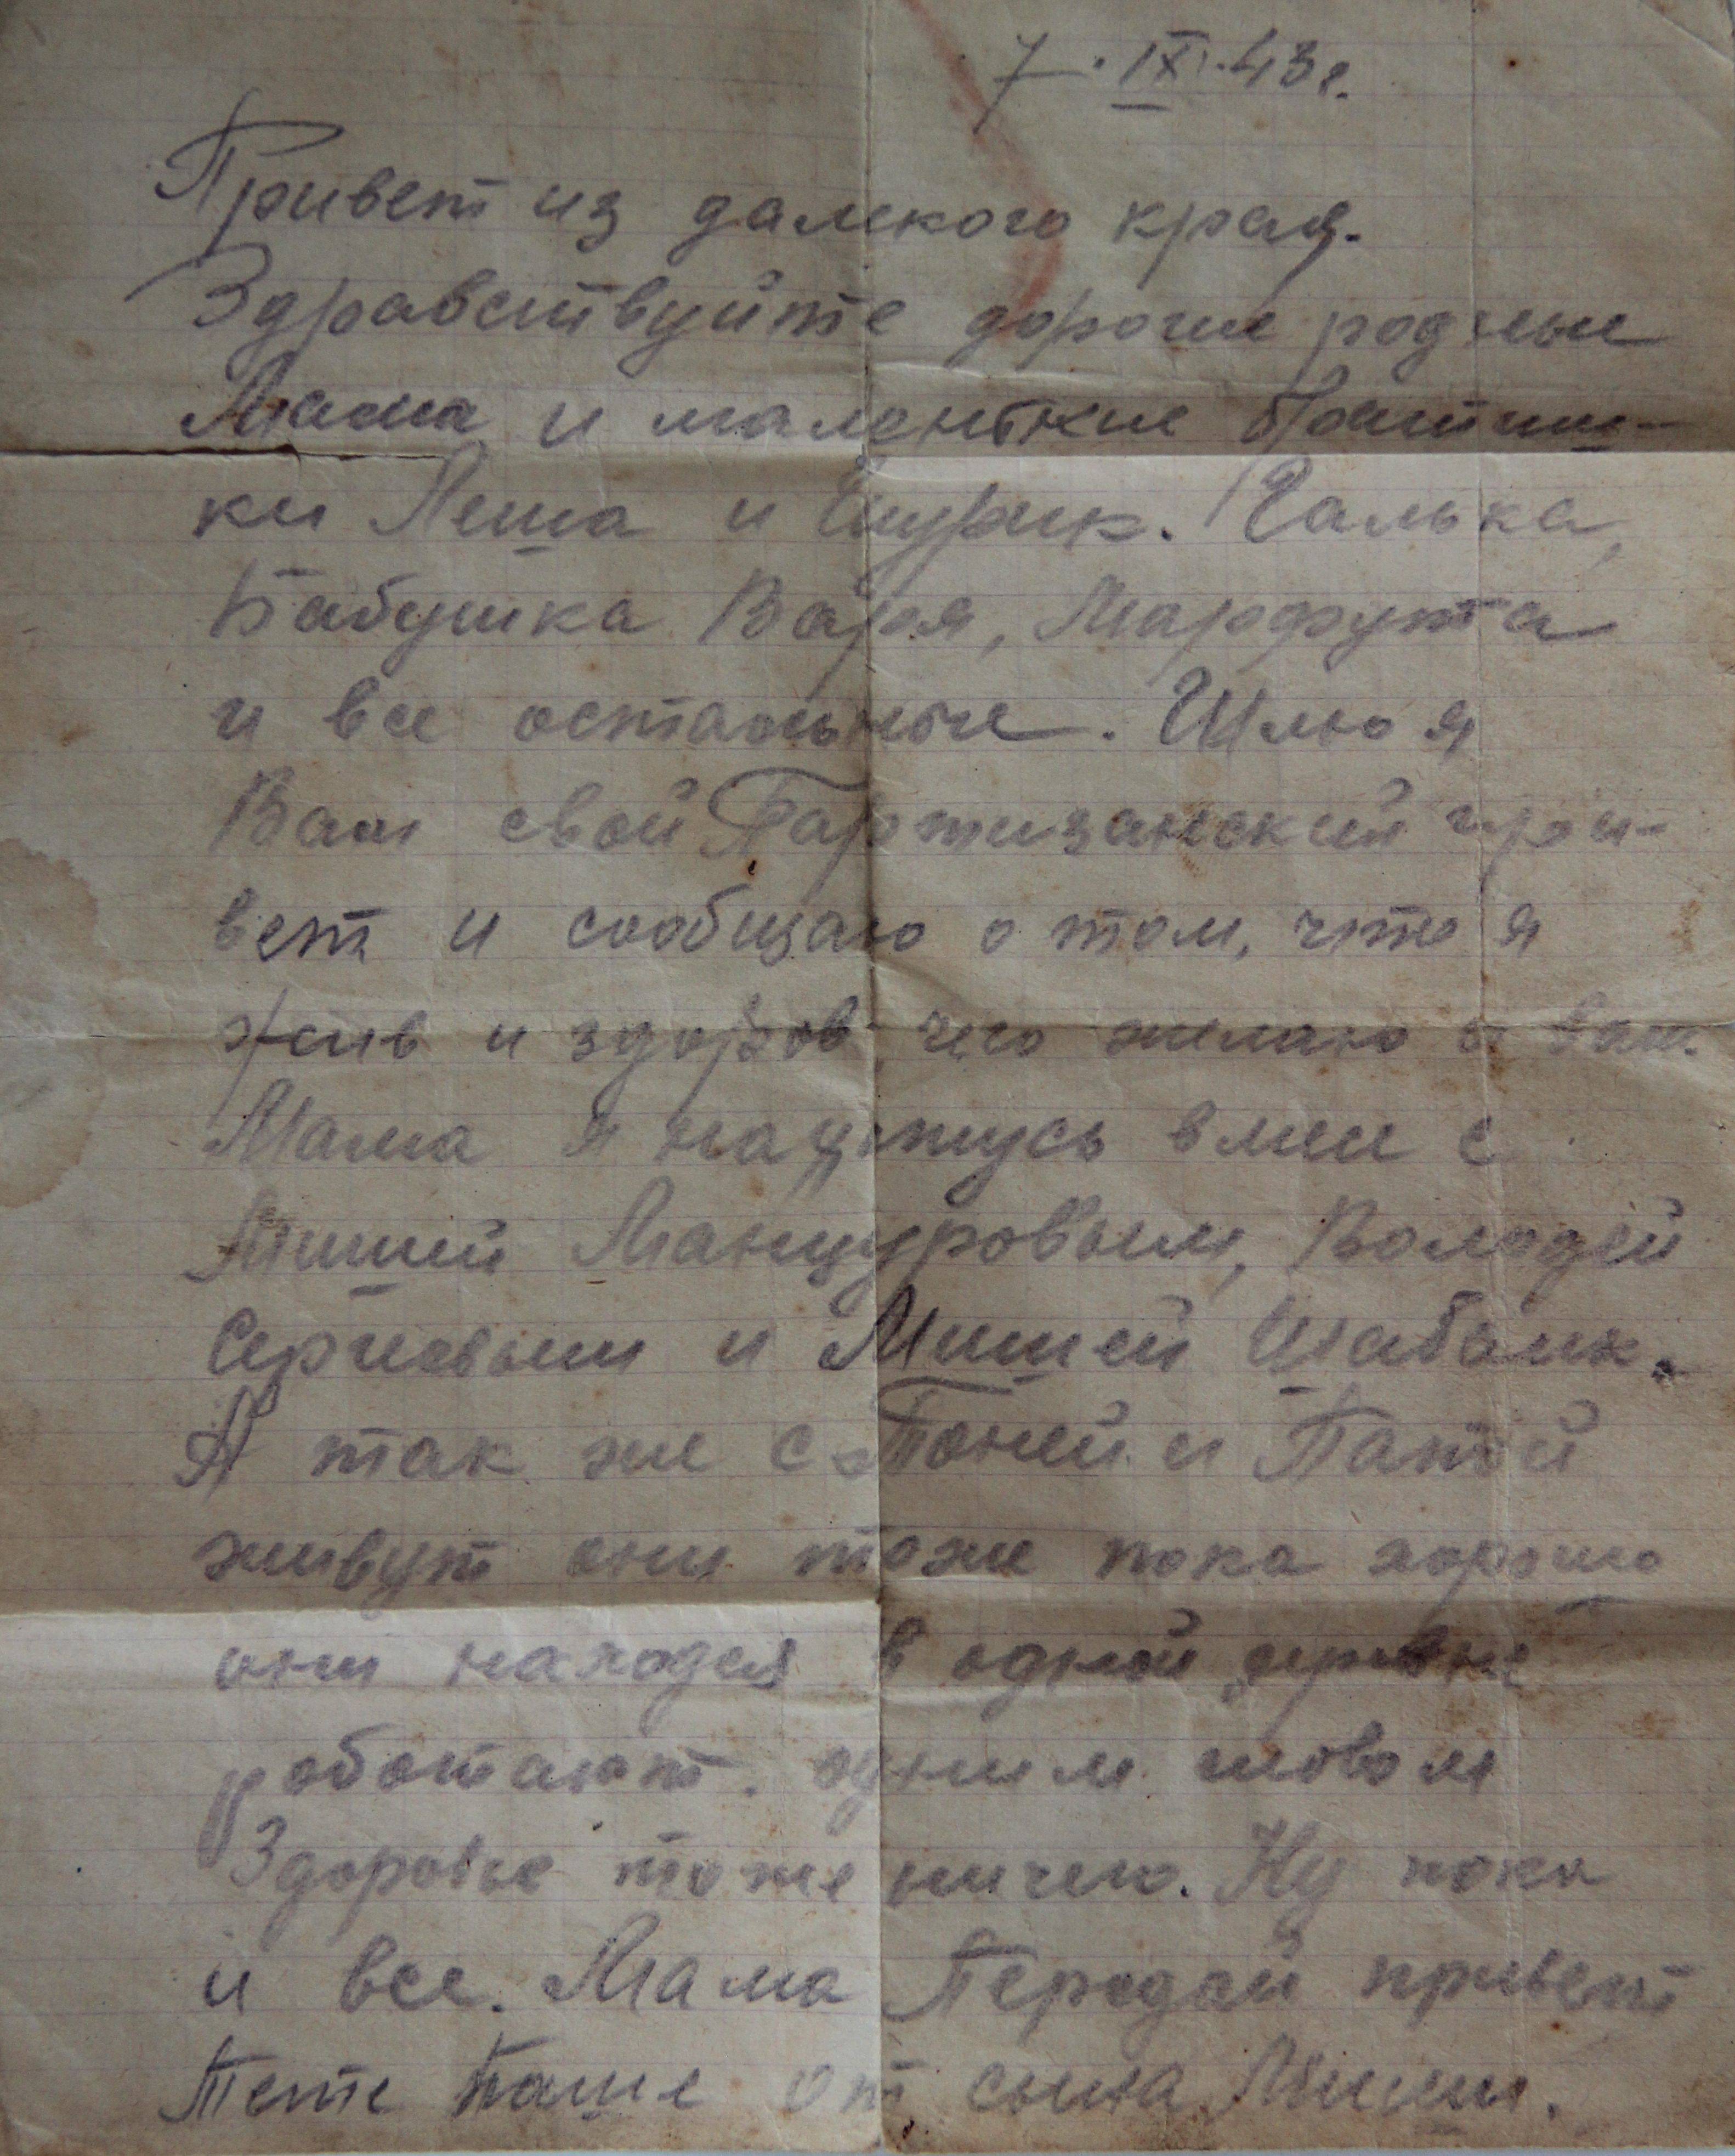 7. IX. 43 г.
Привет из далекого края.
Здравствуйте дорогие родные
Мама и маленькие братиш-
ки Леша и Шурик. Галька,
Бабушка Варя, Марфута
и все остальные. Шлю я
Вам свой Партизанский при-
вет и сообщаю о том, что я
жив и здоров чего желаю и вам.
Мама я нахожусь вмес с
Мишей Манцуровым, Володей
Сергиевым и Мишей
А так же с Тоней и
живут они тоже пока хорошо
они находея в одной деревне
работают. одним словом
Здоровье тоже ничего. Ну пока
и все. Мама Передай привет
Тете Паше от сына Миши.